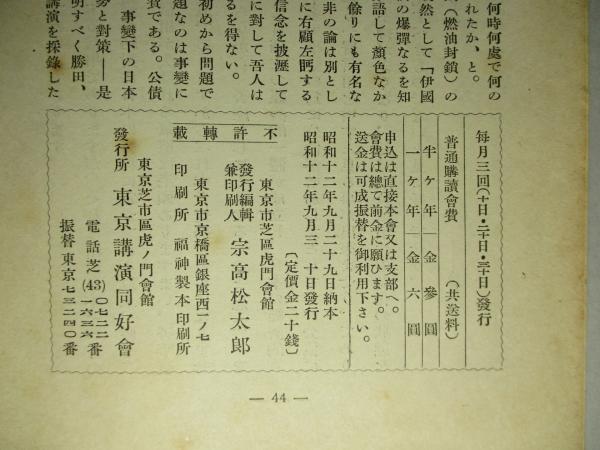 何時何處で何の
れたか、と。
（燃油封鎖）の
然として「伊國
の爆彈なるを知
語して顏色なか
餘りにも有名な
非の論は別とし
に右顧左眄する
信念を披瀝して
に對して吾人は
るを得ない。
初めから問題で
題なのは事變に
費である。公債
事變下の日本
勞と對策――是
明すべく勝田、
講演を採錄した
每月三回(十日・二十日・三十日)發行
普通購讀會費　（共送料）
半ケ年　金參圓
一ケ年　金六圓
申込は直接本會又は支部へ。
會費は總て前金に願ひます。
送金は可成振替を御利用下さい。
昭和十二年九月二十九日納本
昭和十二年九月三十日發行
〔定價金二十錢〕
不許轉載
東京市芝區虎門會館
發行編輯兼印刷人　宗高松太郎
東京市京橋區銀座西一ノ七
印刷所　福神製本印刷所
東京芝市區虎ノ門會館
發行所　東京講演同好會
電話芝(43)〇七二二番
一六三六番
振替東京七三二四〇番
— 44 —